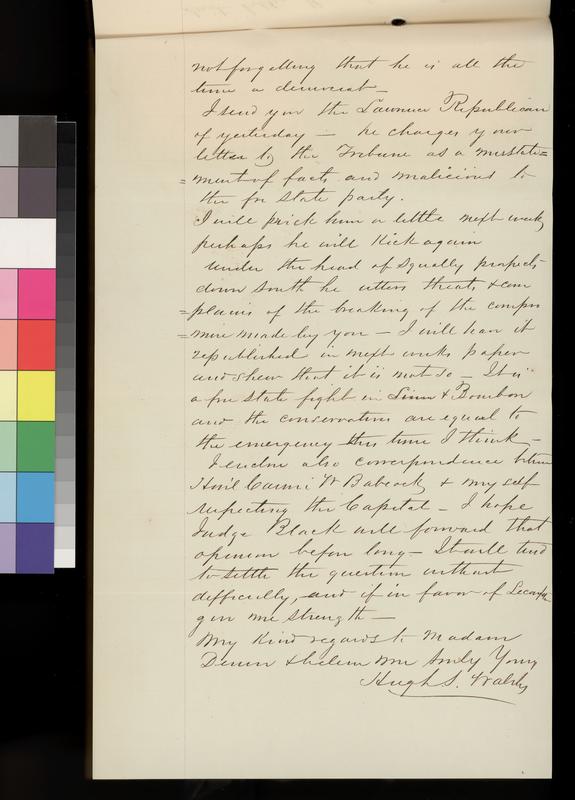 not forgetting that he is all the
time a democrat_
I send you the Lawrence Republican
of yesterday — he charges your
letter to the Tribune as a misstate=
=ment of facts and malicious to
the free State party.
I will prick him a little next week,
perhaps he will kick again
under the head of squally prospects
down South he utters threats & com
=plains of the breaking of the compro
=mise made by you — I will have it
republished in next weeks paper
and shew that it is not so — It is
a free State fight in Linn & Bourbon
and the conservatives are equal to
the emergency this time I think —
I enclose also correspondence between
Hon'l Carmi W Babcock & my self
respecting the Capital — I hope
Judge Black will forward that
opinion before long — It will tend
to settle the question without
difficulty, and if in favor of Lecompton
give me strength —
My kind regards to Madam
Denver & believe me truly Yours
Hugh S. Walsh